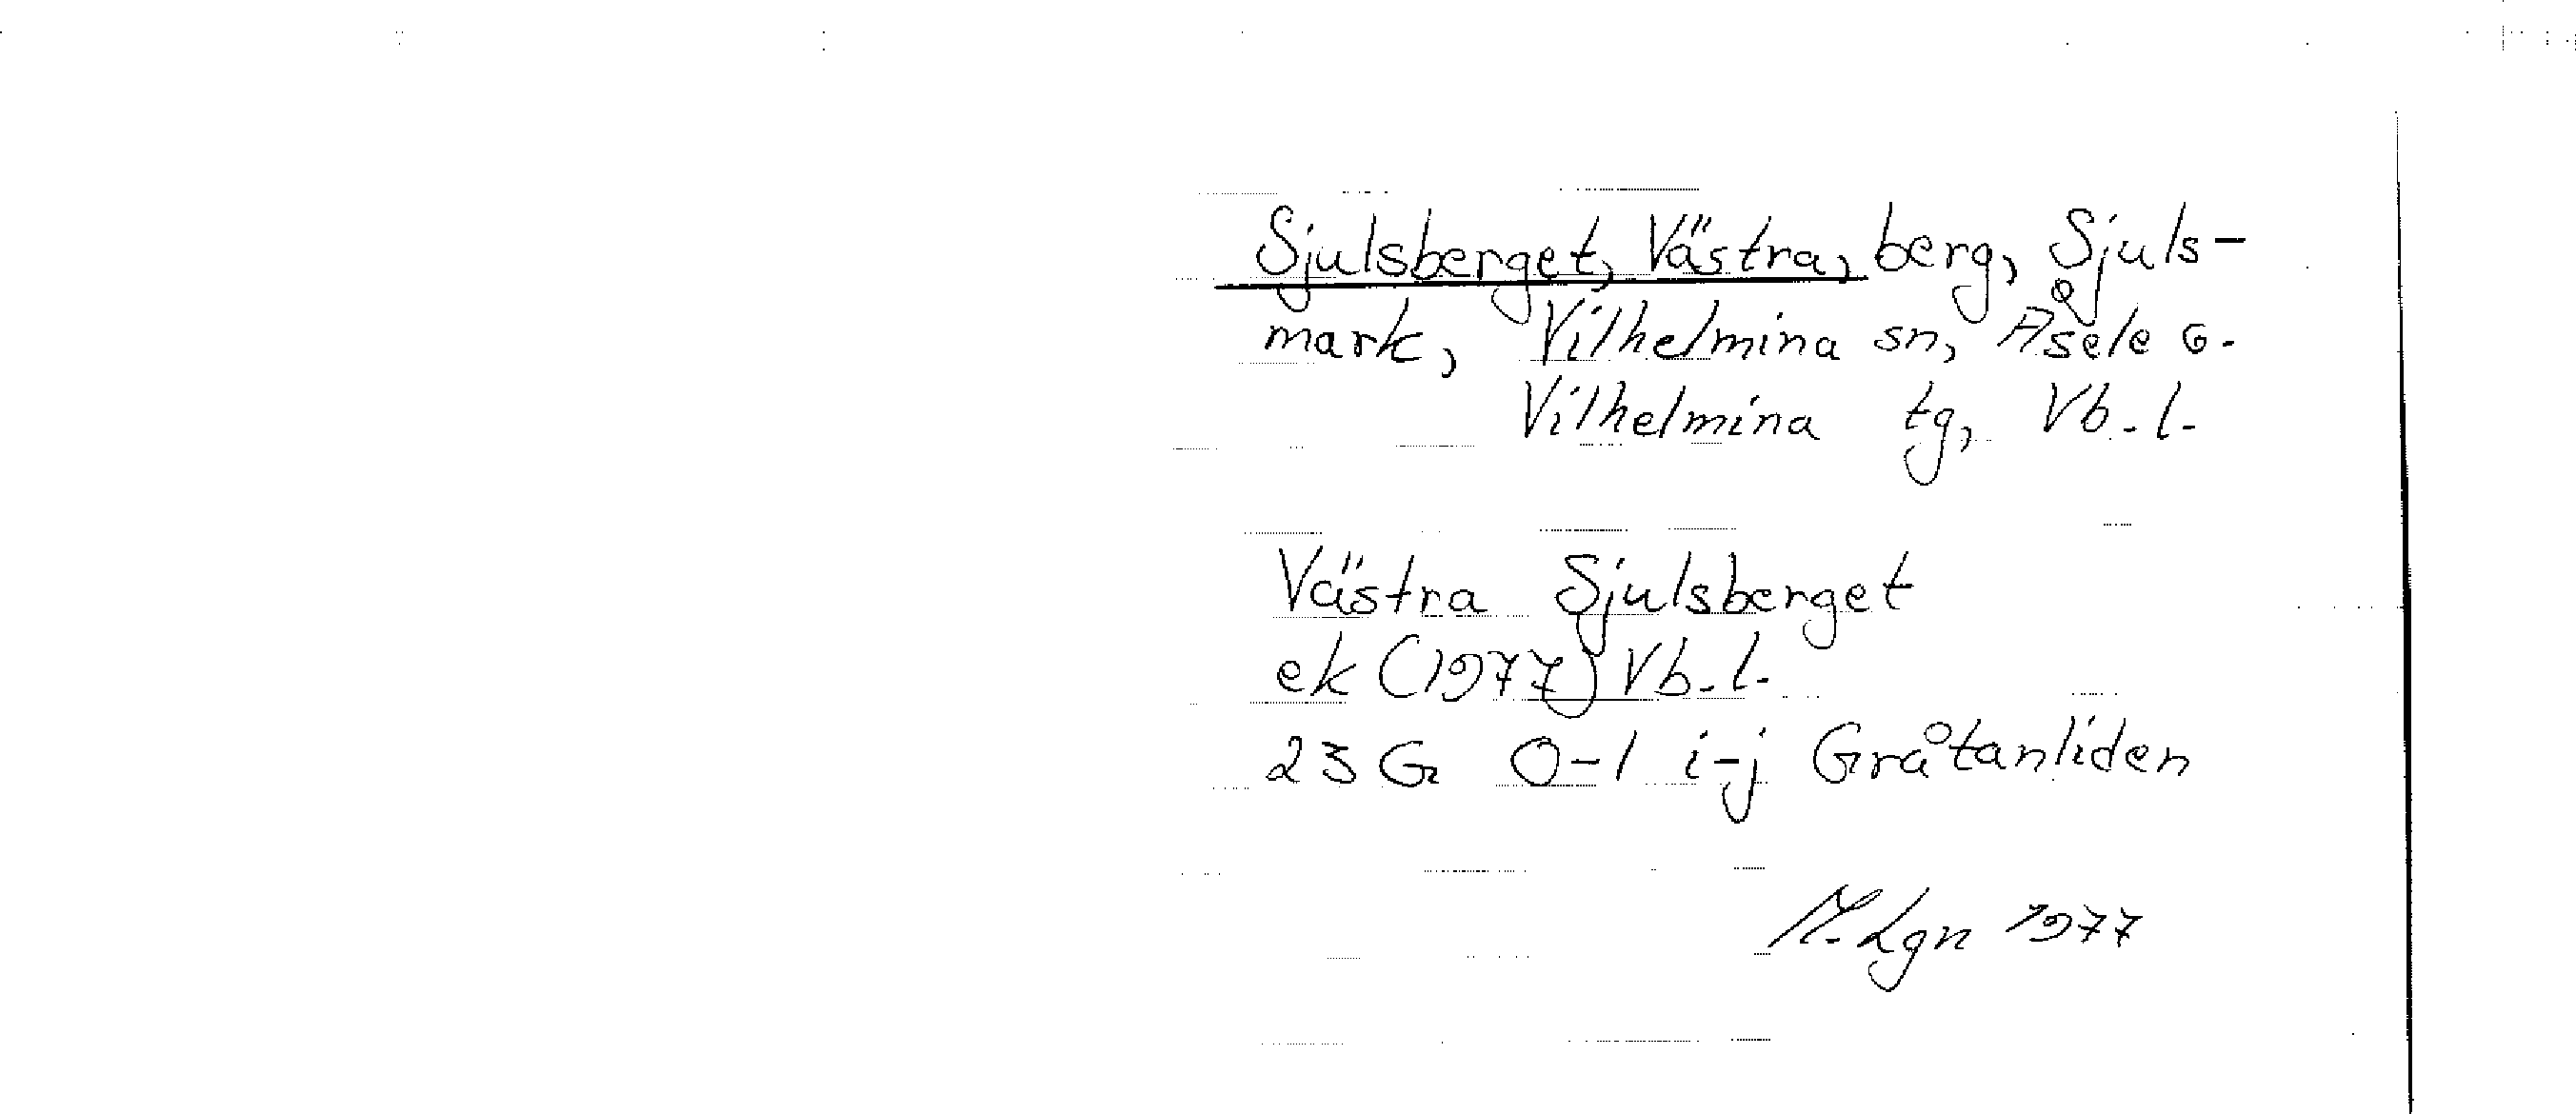 Sjulsberget, Västra, berg, Sjuls-
mark, Vilhelmina sn, Åsele o.
Vilhelmina tg, Vb. l.
Västra Sjulsberget
ek (1977) Vb. l.
23 G 0-1 i-j Gråtanliden
M. Lgn 1977